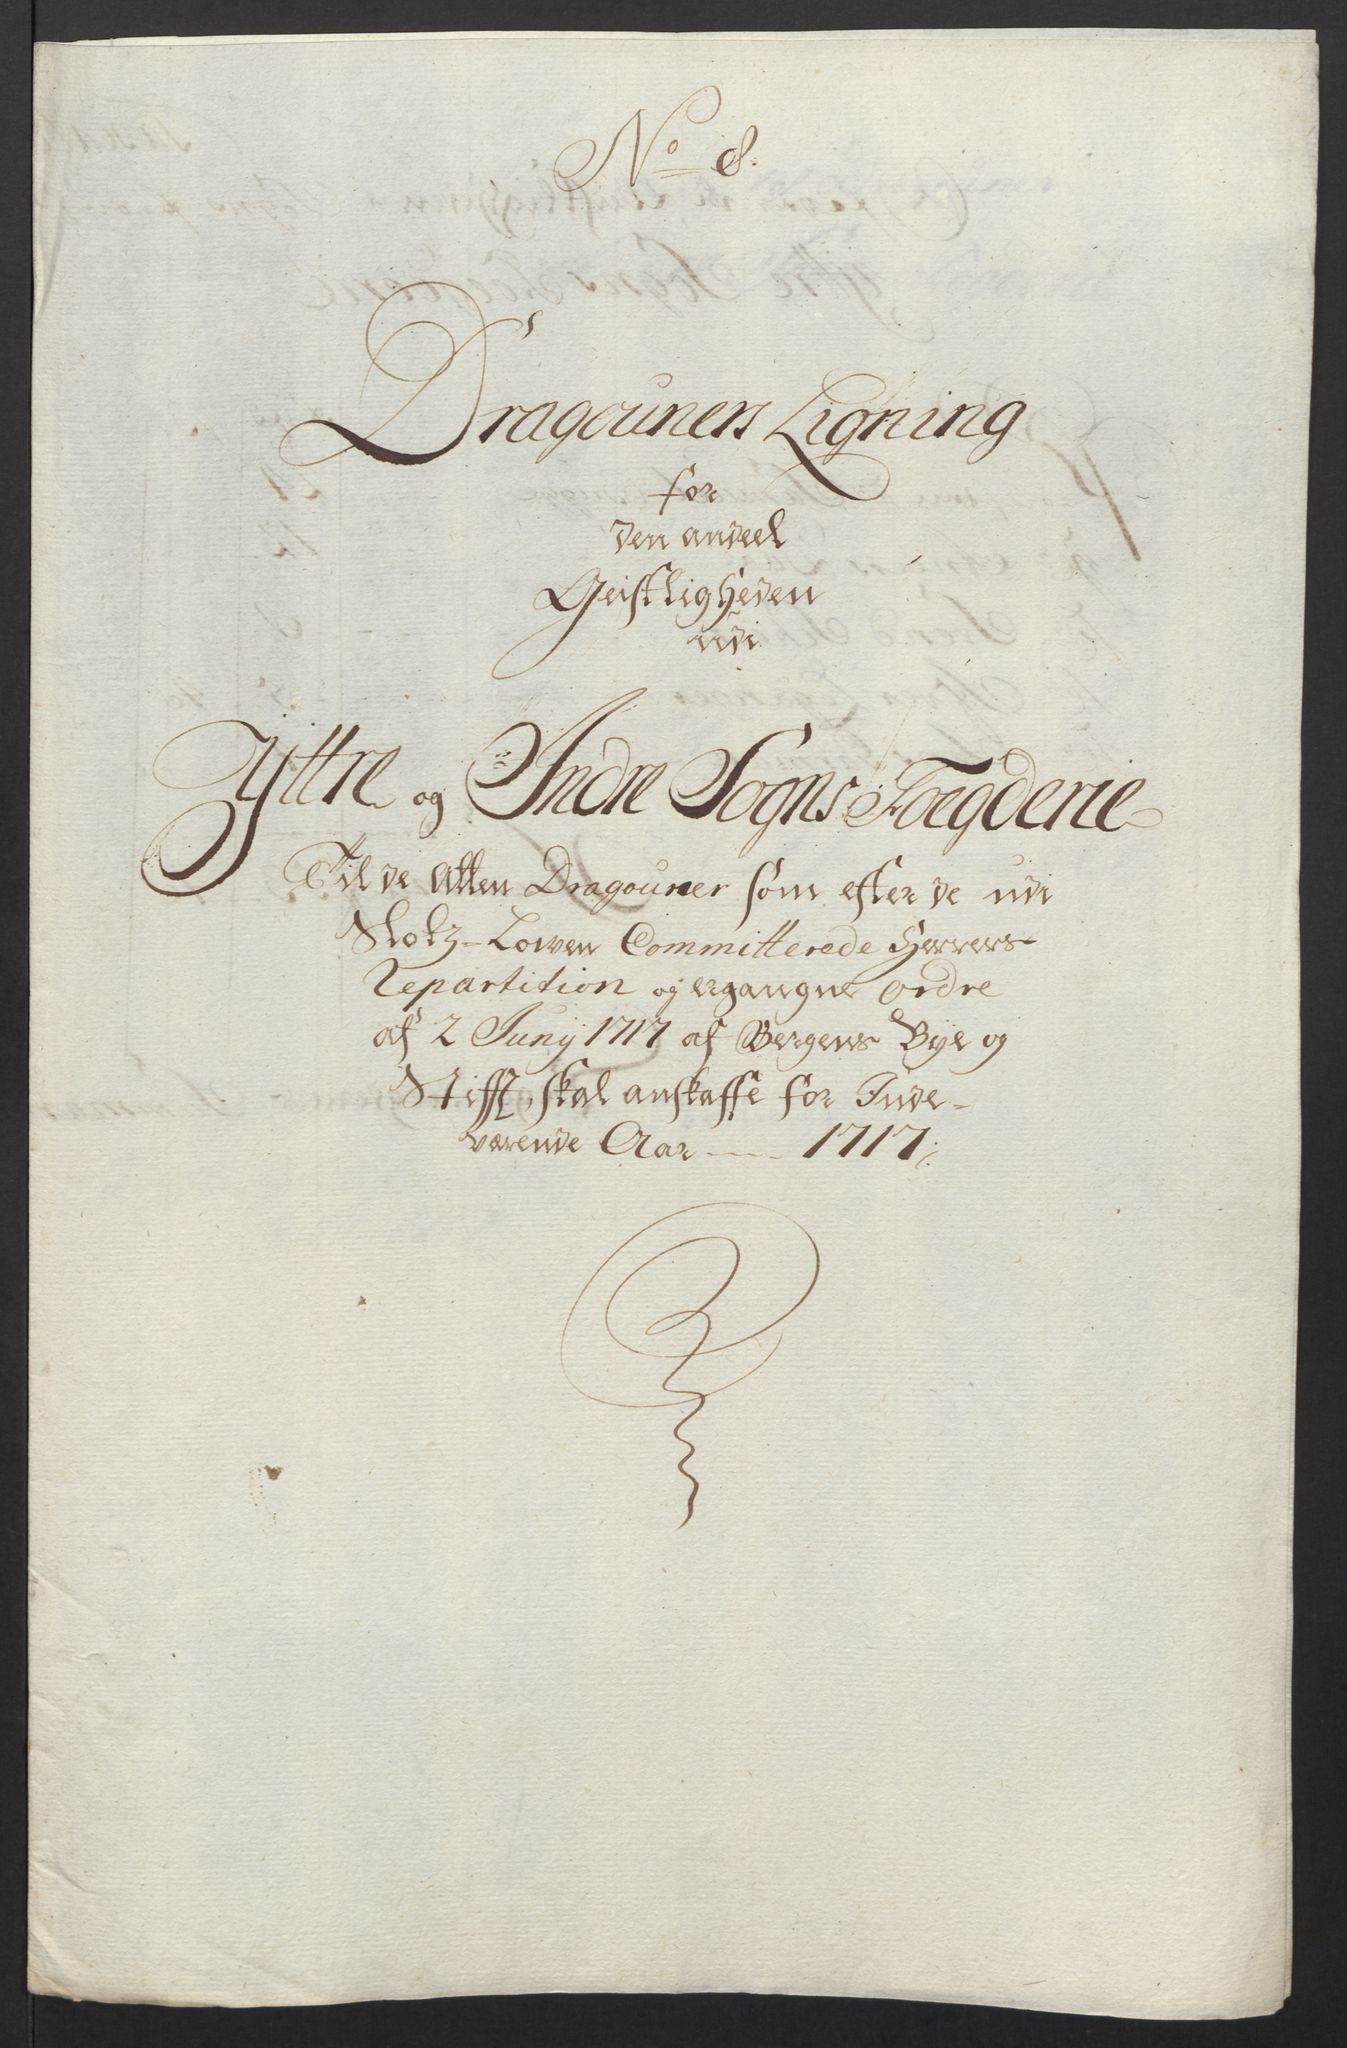 No 8.
Dragouners Ligning
for
den andeel
Geistligheden
udi
Yttre og Indre Sogns Foegderie
Til de Atten Dragouner som efter de udi
Slotz-Lowen Committerede Herrers
Repartition og ergangne ordre
af 2 Junij 1717 af Bergens Bye og
Stifft, skal anskaffe for Inde-
værende Aar — 1717.